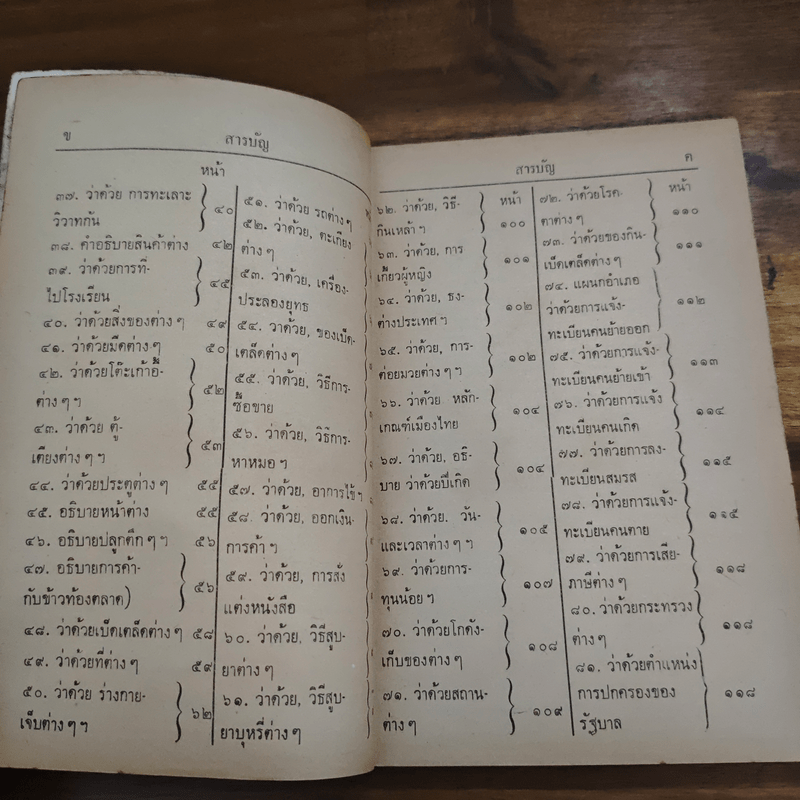 ข
สารบัญ
หน้า
๓๗. ว่าด้วย การทะเลาะ
วิวาทกัน ๔๐
๓๘. คำอธิบายสินค้าต่าง ๔๒
๓๙. ว่าด้วยการที่
ไปโรงเรียน ๔๕
๔๐. ว่าด้วยสิ่งของต่าง ๆ ๔๙
๔๑. ว่าด้วยมีดต่าง ๆ ๕๐
๔๒. ว่าด้วยโต๊ะเก้าอี้-
ต่าง ๆ ฯ ๕๒
๔๓. ว่าด้วย ตู้-
เตียงต่าง ๆ ฯ ๕๓
๔๔. ว่าด้วยประตูต่าง ๆ ๕๕
๔๕. อธิบายหน้าต่าง ๕๕
๔๖. อธิบายปลูกตึก ๆ ฯ ๕๖
๔๗. อธิบายการค้า-
กับข้าวท้องตลาด) ๕๖
๔๘. ว่าด้วยเบ็ดเตล็ดต่าง ๆ ๕๘
๔๙. ว่าด้วยที่ต่าง ๆ ๕๙
๕๐. ว่าด้วย ร่างกาย-
เจ็บต่าง ๆ ฯ ๖๒
๕๑. ว่าด้วย รถต่าง ๆ
๕๒. ว่าด้วย, ตะเกียง
ต่าง ๆ
๕๓. ว่าด้วย, เครื่อง-
ประลองยุทธ
๕๔. ว่าด้วย, ของเบ็ด-
เตล็ดต่าง ๆ
๕๕. ว่าด้วย, วิธีการ-
ซื้อขาย
๕๖. ว่าด้วย, วิธีการ-
หาหมอ ฯ
๕๗. ว่าด้วย, อาการไข้ ฯ
๕๘. ว่าด้วย, ออกเงิน-
การค้า ฯ
๕๙. ว่าด้วย, การสั่ง
แต่งหนังสือ
๖๐. ว่าด้วย, วิธีสูบ-
ยาต่าง ๆ
๖๑. ว่าด้วย, วิธีสูบ-
ยาบุหรี่ต่าง ๆ
สารบัญ
ค
หน้า
๖๒. ว่าด้วย, วิธี-
กินเหล้า ฯ ๑๐๐
๖๓. ว่าด้วย, การ
เกี้ยวผู้หญิง ๑๐๑
๖๔. ว่าด้วย, ธง-
ต่างประเทศ ฯ ๑๐๒
๖๕. ว่าด้วย, การ-
ต่อยมวยต่าง ๆ ฯ ๑๐๒
๖๖. ว่าด้วย หลัก-
เกณฑ์เมืองไทย ๑๐๔
๖๗. ว่าด้วย, อธิ-
บาย ว่าด้วยปีเกิด ๑๐๔
๖๘. ว่าด้วย. วัน-
และเวลาต่าง ๆ ฯ ๑๐๕
๖๙. ว่าด้วยการ-
ทุนน้อย ฯ ๑๐๗
๗๐. ว่าด้วยโกดัง-
เก็บของต่าง ๆ ๑๐๘
๗๑. ว่าด้วยสถาน-
ต่าง ๆ ๑๐๙
หน้า
๗๒. ว่าด้วยโรค-
ตาต่าง ๆ ฯ ๑๑๐
๗๓. ว่าด้วยของกิน-
เบ็ดเตล็ดต่าง ๆ ๑๑๑
๗๔. แผนกอำเภอ
ว่าด้วยการแจ้ง-
ทะเบียนคนย้ายออก ๑๑๒
๗๕. ว่าด้วยการแจ้ง-
ทะเบียนคนย้ายเข้า ๑๑๓
๗๖. ว่าด้วยการแจ้ง
ทะเบียนคนเกิด ๑๑๔
๗๗. ว่าด้วยการลง-
ทะเบียนสมรส ๑๑๕
๗๘. ว่าด้วยการแจ้ง-
ทะเบียนคนตาย ๑๑๕
๗๙. ว่าด้วยการเสีย-
ภาษีต่าง ๆ ๑๑๘
๘๐. ว่าด้วยกระทรวง
ต่าง ๆ ๑๑๘
๘๑. ว่าด้วยตำแหน่ง
การปกครองของ
รัฐบาล ๑๑๘